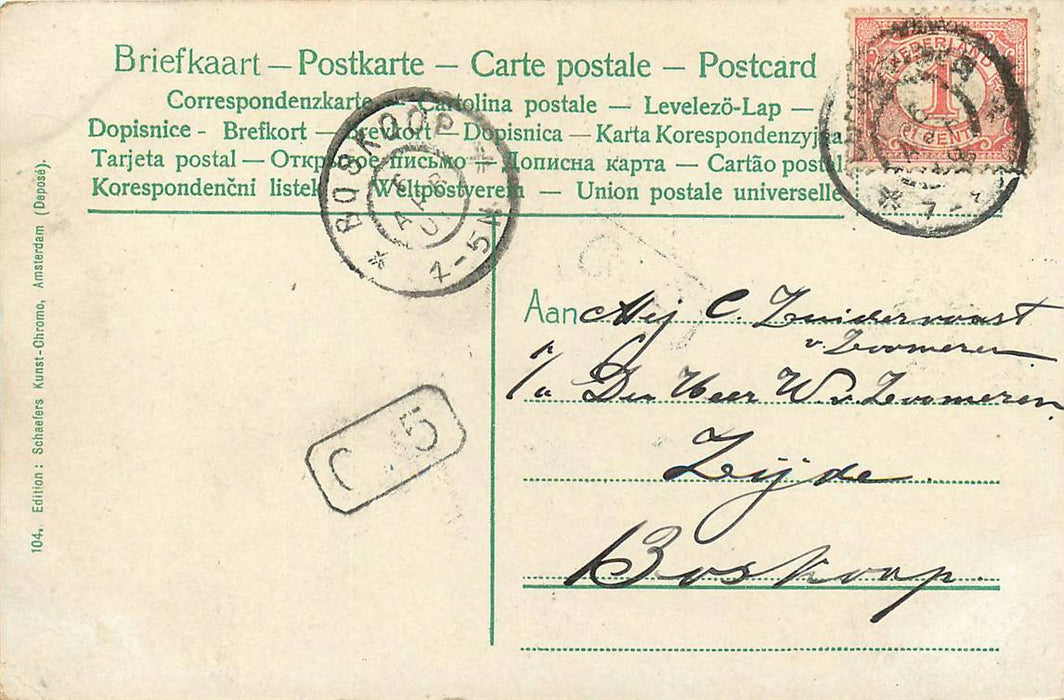 Briefkaart — Postkarte — Carte postale — Postcard
Correspondenzkarte — Cartolina postale — Levelezö-Lap —
Dopisnice - Brefkort — Brevkort — Dopisnica — Karta Korespondenzyjna
Tarjeta postal — Открытое письмо — Дописна карта — Cartão postal
Korespondenčni listek Weltpostverein — Union postale universelle
NEDERLAND
1
CENT
BOSKOOP
4-5N
Aan Mej C. Zuidervaart
v Zoomeren
p/a Den Heer W v. Zoomeren.
Zijde.
Boskoop.
104. Edition: Schaefers Kunst-Chromo, Amsterdam (Deposé).